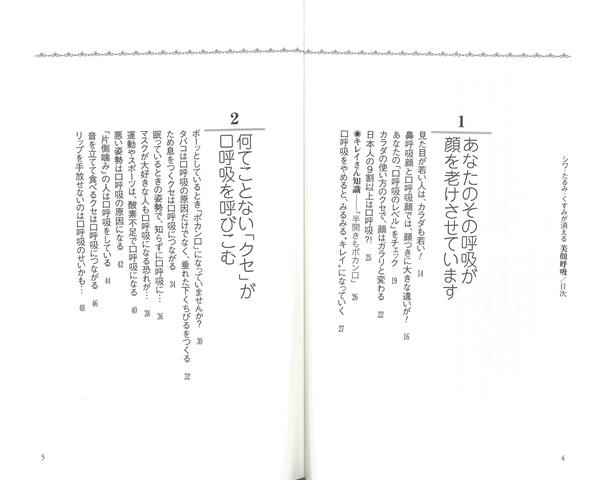 シワ・たるみ・くすみが消える 美顔呼吸／目次
1
あなたのその呼吸が
顔を老けさせています
見た目が若い人は、カラダも若い! 14
鼻呼吸顔と口呼吸顔では、顔つきに大きな違いが! 16
あなたの「口呼吸のレベル」をチェック 19
カラダの使い方のクセで、顔はガラリと変わる 22
日本人の9割以上は口呼吸?! 25
◉キレイさん知識――「半開きもポカン口」 26
口呼吸をやめると、みるみる“キレイ”になっていく 27
4
2
何てことない「クセ」が
口呼吸を呼びこむ
ボーッとしているとき「ポカン口」になっていませんか? 30
タバコは口呼吸の原因だけでなく、垂れた下くちびるをつくる 32
ため息をつくクセは口呼吸につながる 34
眠っているときの姿勢で、知らずに口呼吸に… 36
マスクが大好きな人も口呼吸になる恐れが… 38
運動やスポーツは、酸素不足で口呼吸になる 40
悪い姿勢は口呼吸の原因になる 42
「片側噛み」の人は口呼吸をしている 44
音を立てて食べるクセは口呼吸につながる 46
リップを手放せないのは口呼吸のせいかも… 48
5